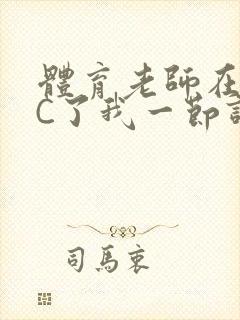 體育老師在
C了我一節
司馬衷